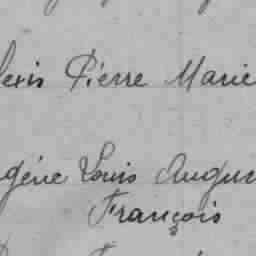 lexis Pierre Marie
gène Louis Augus
François